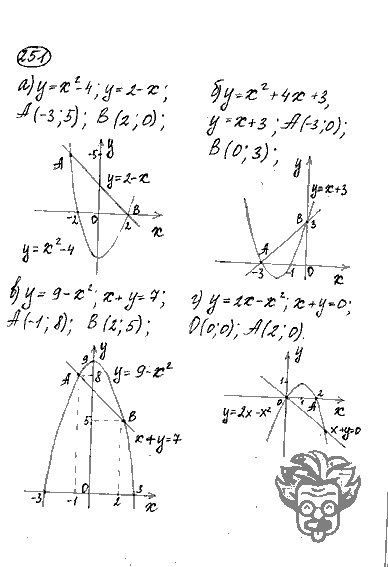 251
а) y = x² - 4; y = 2 - x;
A(-3; 5); B(2; 0);
y
A
5
y = 2 - x
-2
0
2
B
x
y = x² - 4
б) y = x² + 4x + 3,
y = x + 3; A(-3; 0);
B(0; 3);
y
y = x + 3
B
3
A
-3
-1
0
x
в) y = 9 - x²; x + y = 7;
A(-1; 8); B(2; 5);
y
9
A
8
y = 9 - x²
5
B
x + y = 7
-3
-1
0
2
3
x
г) y = 2x - x²; x + y = 0;
O(0; 0); A(2; 0).
y
1
0
1
A
2
x
y = 2x - x²
x + y = 0